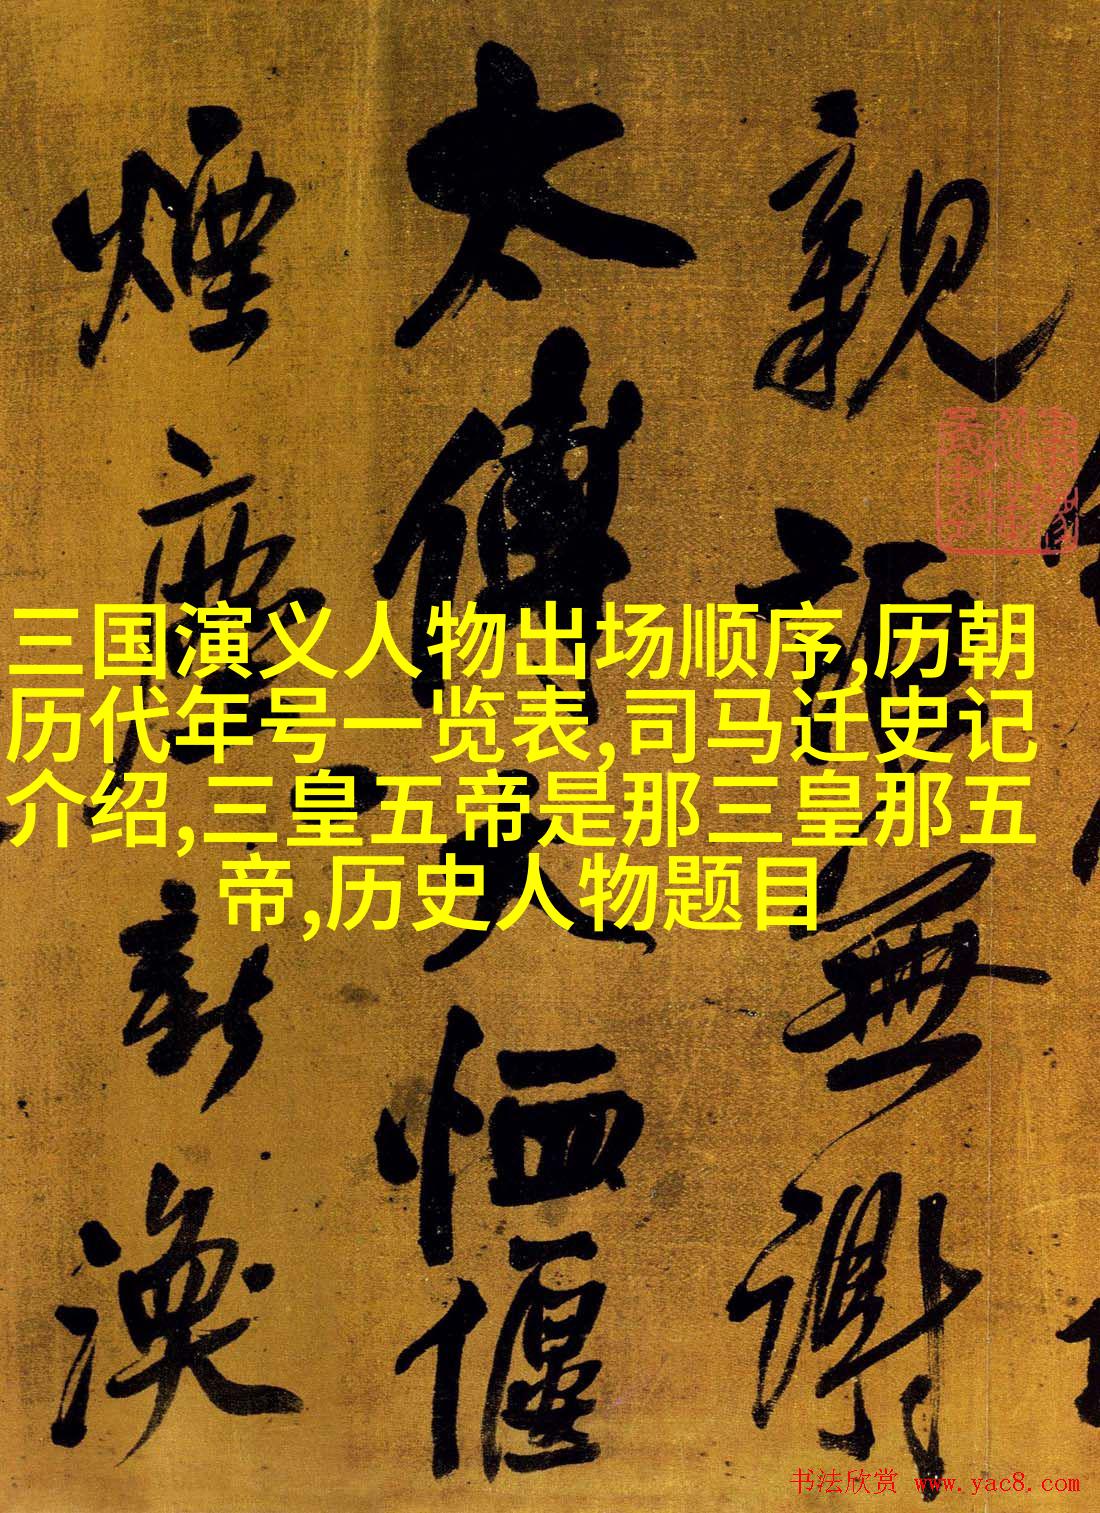 親 無謝
太傅 恤偃
煙塵 渙
三国演义人物出场顺序,历朝
历代年号一览表,司马迁史记
介绍,三皇五帝是那三皇那五
帝,历史人物题目
书法欣赏 www.yac8.com